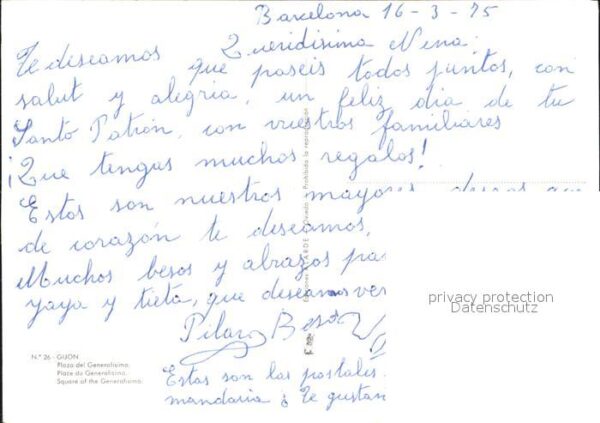 Barcelona 16-3-75
Queridisima Nena:
Te deseamos que paseis todos juntos, con
salut y alegria, un feliz dia de tu
Santo Patrón, con vuestros familiares
¡Que tengas muchos regalos!
Estos son nuestros mayores
de corazón te deseamos,
Muchos besos y abrazos pa
yaya y tieta, que deseamos ver
Pilar
Estas son las postales
mandaria ¿Te gustan
N.° 26 - GIJON
Plaza del Generalísimo.
Place du Generalísimo.
Square of the Generalísimo.
Prohibida la reproducción
privacy protection
Datenschutz